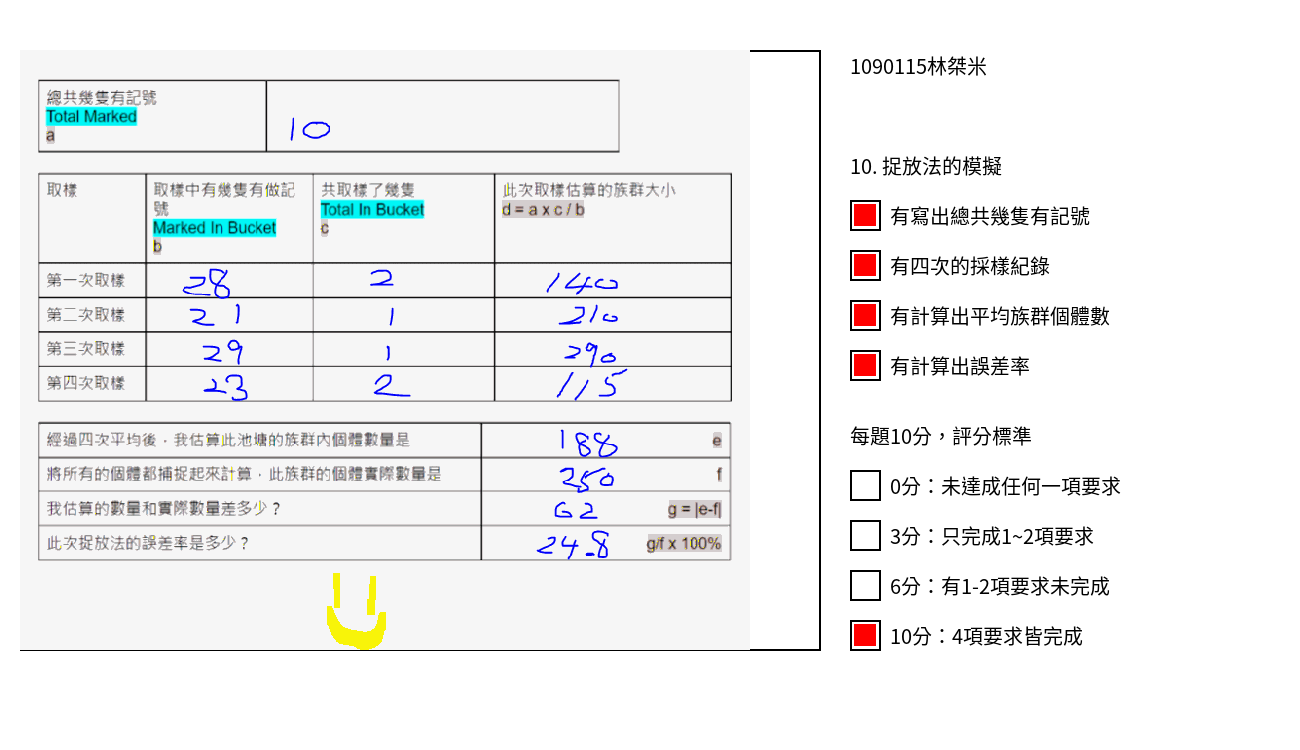 總共幾隻有記號
Total Marked
a
10
取樣
取樣中有幾隻有做記
號
Marked In Bucket
b
共取樣了幾隻
Total In Bucket
c
此次取樣估算的族群大小
d = a x c / b
第一次取樣 28 2 140
第二次取樣 21 1 210
第三次取樣 29 1 290
第四次取樣 23 2 115
經過四次平均後，我估算此池塘的族群內個體數量是 188 e
將所有的個體都捕捉起來計算，此族群的個體實際數量是 250 f
我估算的數量和實際數量差多少？ 62 g = |e-f|
此次捉放法的誤差率是多少？ 24.8 g/f x 100%
1090115林桀米
10. 捉放法的模擬
有寫出總共幾隻有記號
有四次的採樣紀錄
有計算出平均族群個體數
有計算出誤差率
每題10分，評分標準
0分：未達成任何一項要求
3分：只完成1~2項要求
6分：有1-2項要求未完成
10分：4項要求皆完成